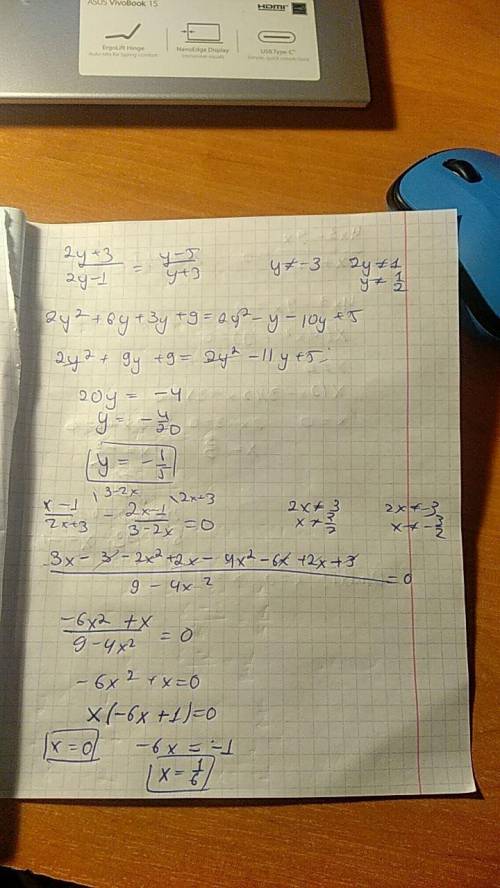 ASUS VivoBook 15
HDMI
ErgoLift Hinge
NanoEdge Display
USB Type-C™
(2y+3)/(2y-1) = (y-5)/(y+3)   y≠-3   2y≠1
y≠1/2
2y² + 6y + 3y + 9 = 2y² - y - 10y + 5
2y² + 9y + 9 = 2y² - 11y + 5
20y = -4
y = -4/20
y = -1/5
(x-1)/(2x+3) \3-2x - (2x-1)/(3-2x) \2x+3 = 0   2x≠3   2x≠-3
x≠3/2   x≠-3/2
(3x - 3 - 2x² + 2x - 4x² - 6x + 2x + 3)/(9 - 4x²) = 0
(-6x² + x)/(9 - 4x²) = 0
-6x² + x = 0
x(-6x + 1) = 0
x = 0   -6x = -1
x = 1/6